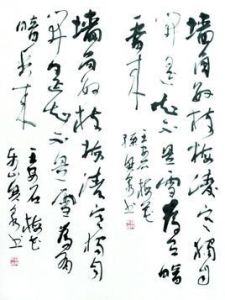 墙角数枝梅凌寒独自
开遥知不是雪为有暗
香来
王安石梅花
墙角数枝梅凌寒独自
开遥知不是雪为有
暗香来
王安石梅花